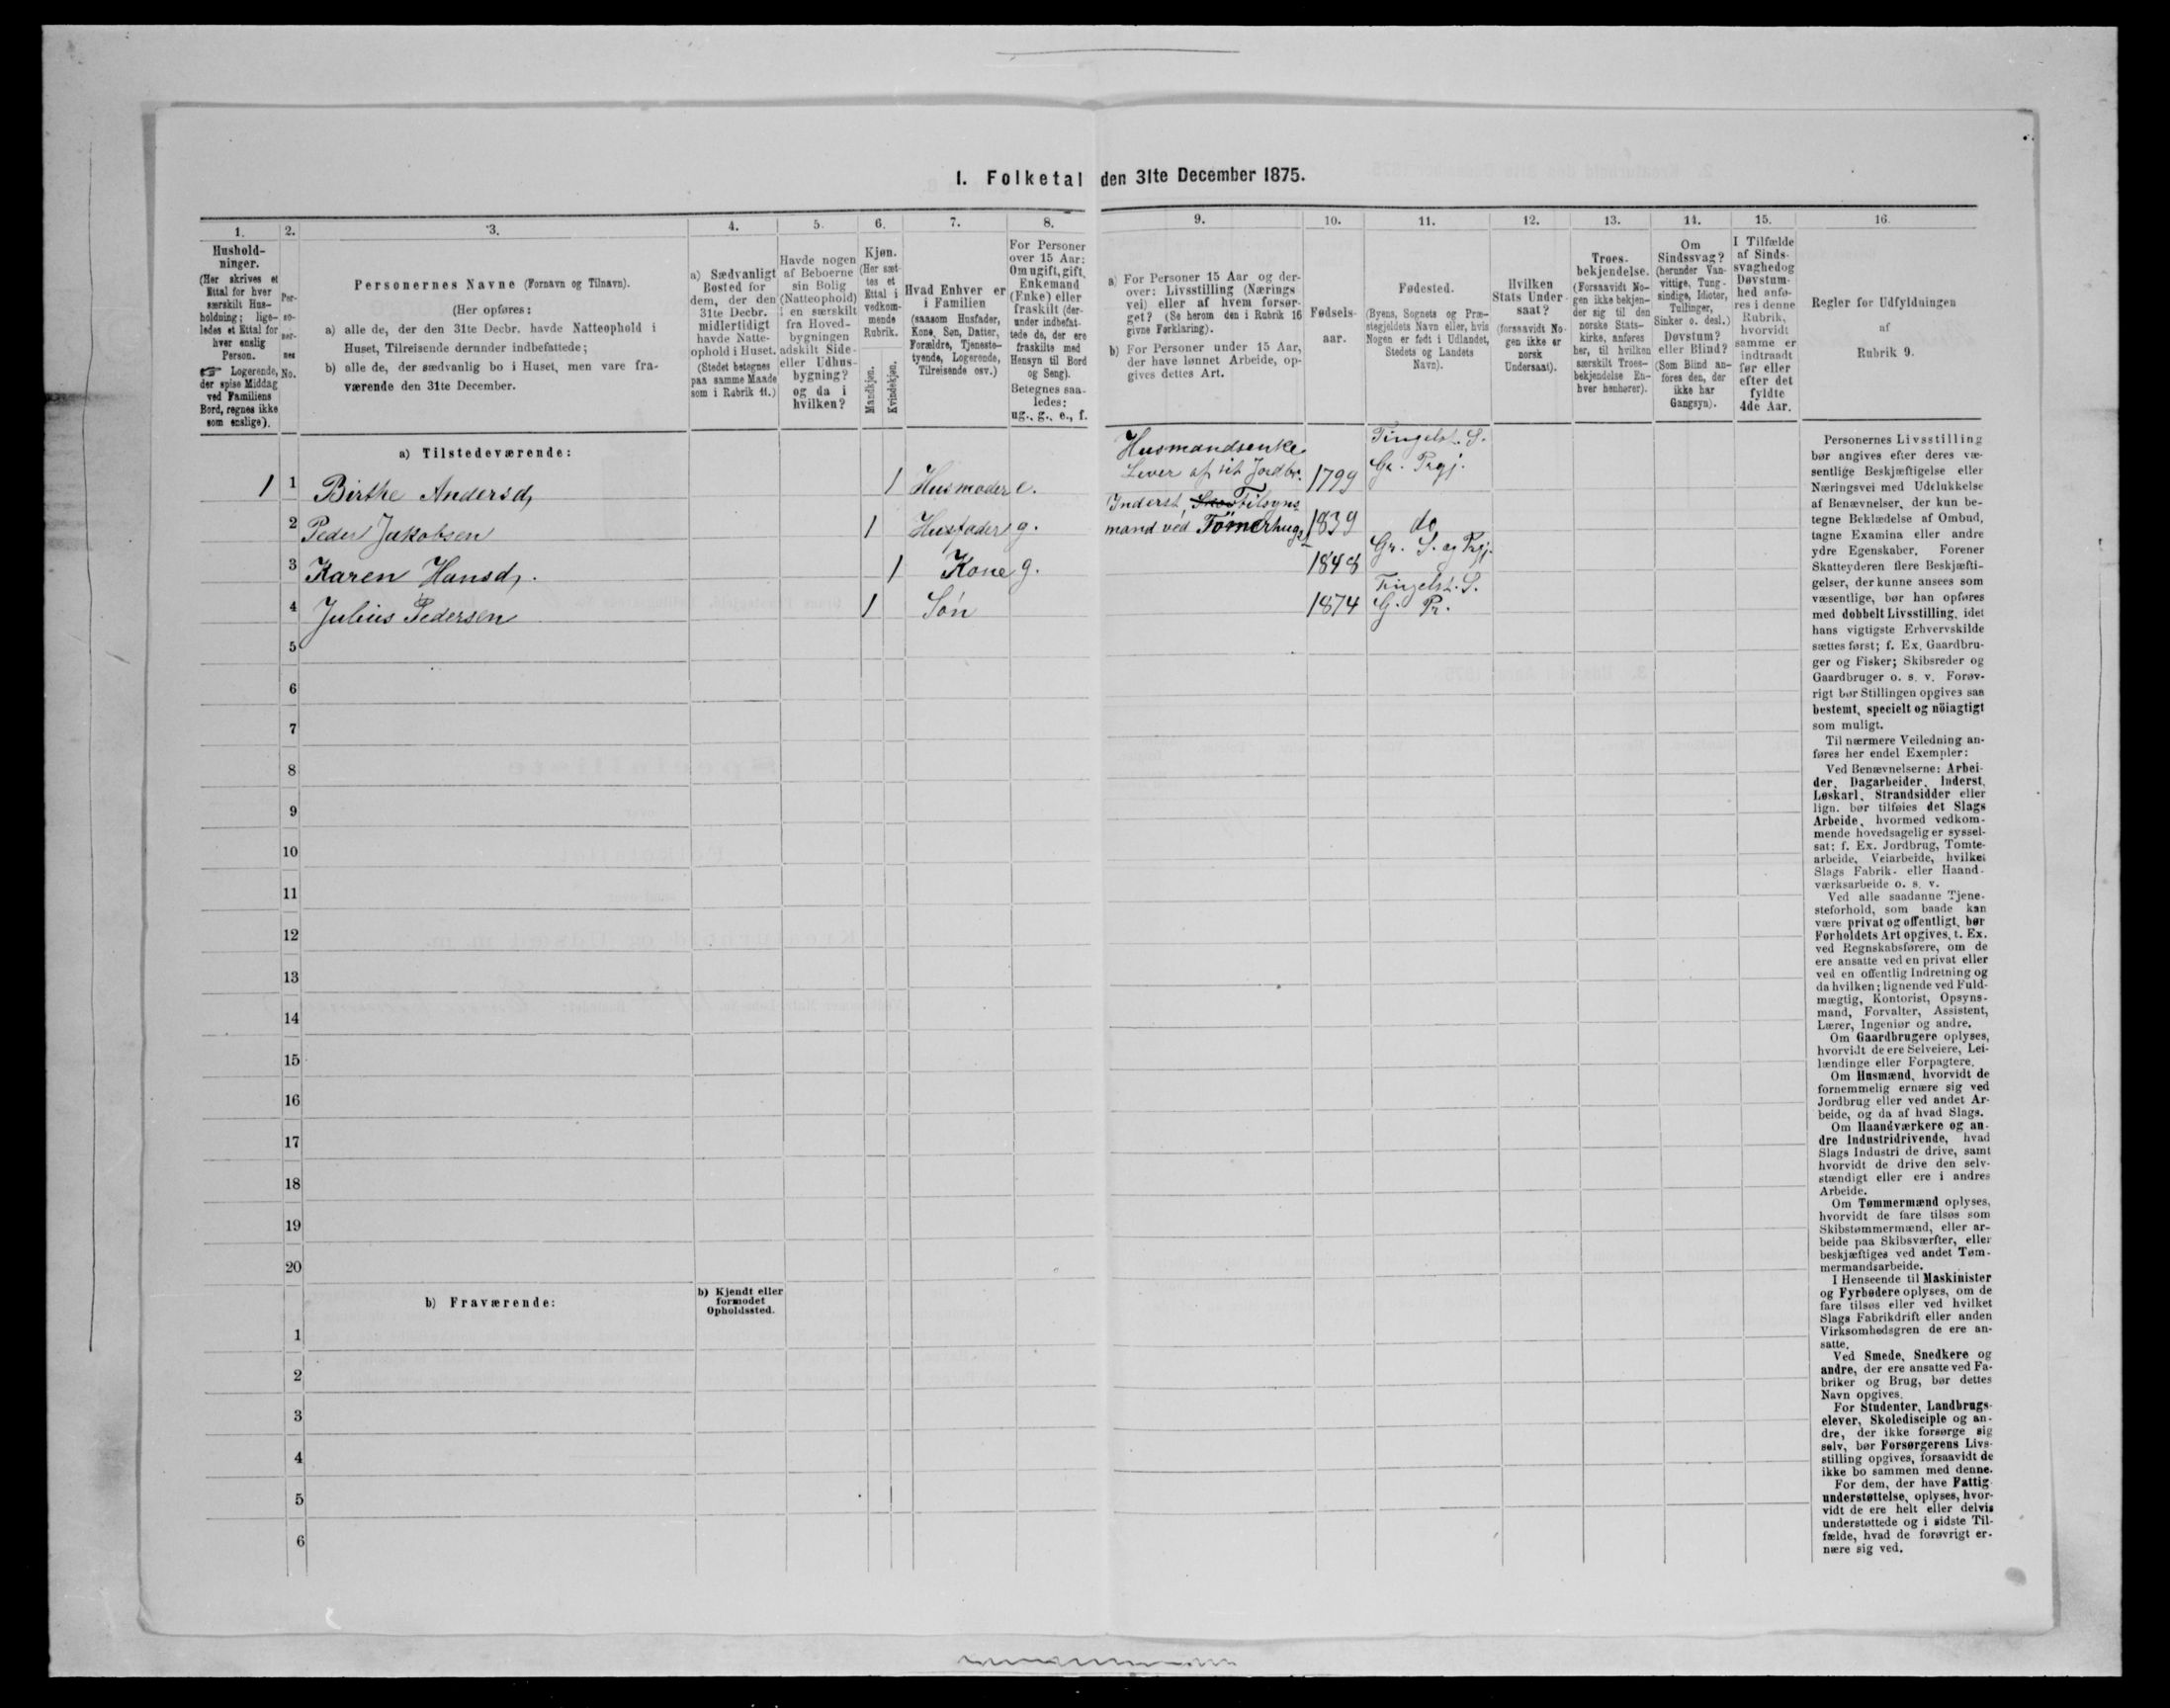 I. Folketal den 31te December 1875.
1.
Hushold-
ninger.
(Her skrives et
Ettal for hver
særskilt Hus-
holdning; lige-
ledes et Ettal for
hver enslig
Person.
☞ Logerende,
der spise Middag
ved Familiens
Bord, regnes ikke
som enslige).
2.
Per-
so-
ner-
nes
No.
3.
Personernes Navne (Fornavn og Tilnavn).
(Her opføres:
a) alle de, der den 31te Decbr. havde Natteophold i
Huset, Tilreisende derunder indbefattede;
b) alle de, der sædvanlig bo i Huset, men vare fra-
værende den 31te December.
4.
a) Sædvanligt
Bosted for
dem, der den
31te Decbr.
midlertidigt
havde Natte-
ophold i Huset.
(Stedet betegnes
paa samme Maade
som i Rubrik 11.)
5.
Havde nogen
af Beboerne
sin Bolig
(Natteophold)
i en særskilt
fra Hoved-
bygningen
adskilt Side-
eller Udhus-
bygning?
og da i
hvilken?
6.
Kjøn.
(Her sæt-
tes et
Ettal i
vedkom-
mende
Rubrik.
Mandkjøn.
Kvindekjøn.
7.
Hvad Enhver er
i Familien
(saasom Husfader,
Kone, Søn, Datter,
Forældre, Tjeneste-
tyende, Logerende,
Tilreisende osv.)
8.
For Personer
over 15 Aar:
Om ugift, gift,
Enkemand
(Enke) eller
fraskilt (der-
under indbefat-
tede de, der ere
fraskilte med
Hensyn til Bord
og Seng).
Betegnes saa-
ledes:
ug., g., e., f.
9.
a) For Personer 15 Aar og der-
over: Livsstilling (Nærings
vei) eller af hvem forsør-
get? (Se herom den i Rubrik 16
givne Forklaring).
b) For Personer under 15 Aar,
der have lønnet Arbeide, op-
gives dettes Art.
10.
Fødsels-
aar.
11.
Fødested.
(Byens, Sognets og Præ-
stegjeldets Navn eller, hvis
Nogen er født i Udlandet,
Stedets og Landets
Navn).
12.
Hvilken
Stats Under-
saat?
(forsaavidt No-
gen ikke er
norsk
Undersaat).
13.
Troes-
bekjendelse.
(Forsaavidt No-
gen ikke bekjen-
der sig til den
norske Stats-
kirke, anføres
her, til hvilken
særskilt Troes-
bekjendelse En-
hver henhører).
14.
Om
Sindssvag?
(herunder Van-
vittige, Tung-
sindige, Idioter,
Tullinger,
Sinker o. desl.)
Døvstum?
eller Blind?
(Som Blind an-
føres den, der
ikke har
Gangsyn).
15.
I Tilfælde
af Sinds-
svaghedog
Døvstum-
hed anfø-
res i denne
Rubrik,
hvorvidt
samme er
indtraadt
før eller
efter det
fyldte
4de Aar.
16.
Regler for Udfyldningen
af
Rubrik 9.
a) Tilstedeværende:
1 1 Birthe Andersd, 1 Husmoder e. Husmandsenke Lever af sit Jordbr. 1799 Tingelst. S. Gr. Prgj.
2 Peder Jakobsen 1 Husfader g. Inderst, Tilsyns mand ved Tömerhugst 1839 do
3 Karen Hansd,. 1 Kone g. 1848 Gr. S. og Prgj.
4 Julius Pedersen 1 Sön 1874 Tingelst. S. G. Pr.
5
6
7
8
9
10
11
12
13
14
15
16
17
18
19
20
b) Fraværende:
b) Kjendt eller
formodet
Opholdssted.
1
2
3
4
5
6
Personernes Livsstilling
bør angives efter deres væ-
sentlige Beskjæftigelse eller
Næringsvei med Udelukkelse
af Benævnelser, der kun be-
tegne Beklædelse af Ombud,
tagne Examina eller andre
ydre Egenskaber. Forener
Skatteyderen flere Beskjæfti-
gelser, der kunne ansees som
væsentlige, bør han opføres
med dobbelt Livsstilling, idet
hans vigtigste Erhvervskilde
sættes først; f. Ex. Gaardbru-
ger og Fisker; Skibsreder og
Gaardbruger o. s. v. Forøv-
rigt bør Stillingen opgives saa
bestemt, specielt og nöiagtigt
som muligt.
Til nærmere Veiledning an-
føres her endel Exempler:
Ved Benævnelserne: Arbei-
der, Dagarbeider, Inderst,
Løskarl, Strandsidder eller
lign. bør tilføies det Slags
Arbeide, hvormed vedkom-
mende hovedsagelig er syssel-
sat; f. Ex. Jordbrug, Tomte-
arbeide, Veiarbeide, hvilket
Slags Fabrik- eller Haand-
værksarbeide o. s. v.
Ved alle saadanne Tjene-
steforhold, som baade kan
være privat og offentligt, bør
Forholdets Art opgives, t. Ex.
ved Regnskabsførere, om de
ere ansatte ved en privat eller
ved en offentlig Indretning og
da hvilken; lignende ved Fuld-
mægtig, Kontorist, Opsyns-
mand, Forvalter, Assistent,
Lærer, Ingeniør og andre.
Om Gaardbrugere oplyses,
hvorvidt de ere Selveiere, Lei-
lændinge eller Forpagtere.
Om Husmænd, hvorvidt de
fornemmelig ernære sig ved
Jordbrug eller ved andet Ar-
beide, og da af hvad Slags.
Om Haandværkere og an-
dre Industridrivende, hvad
Slags Industri de drive, samt
hvorvidt de drive den selv-
stændigt eller ere i andres
Arbeide.
Om Tømmermænd oplyses,
hvorvidt de fare tilsøs som
Skibstømmermænd, eller ar-
beide paa Skibsværfter, eller
beskjæftiges ved andet Tøm-
mermandsarbeide.
I Henseende til Maskinister
og Fyrbødere oplyses, om de
fare tilsøs eller ved hvilket
Slags Fabrikdrift eller anden
Virksomhedsgren de ere an-
satte.
Ved Smede, Snedkere og
andre, der ere ansatte ved Fa-
briker og Brug, bør dettes
Navn opgives.
For Studenter, Landbrugs-
elever, Skoledisciple og an-
dre, der ikke forsørge sig
selv, bør Forsørgerens Livs-
stilling opgives, forsaavidt de
ikke bo sammen med denne.
For dem, der have Fattig-
understøttelse, oplyses, hvor-
vidt de ere helt eller delvis
understøttede og i sidste Til-
fælde, hvad de forøvrigt er-
nære sig ved.